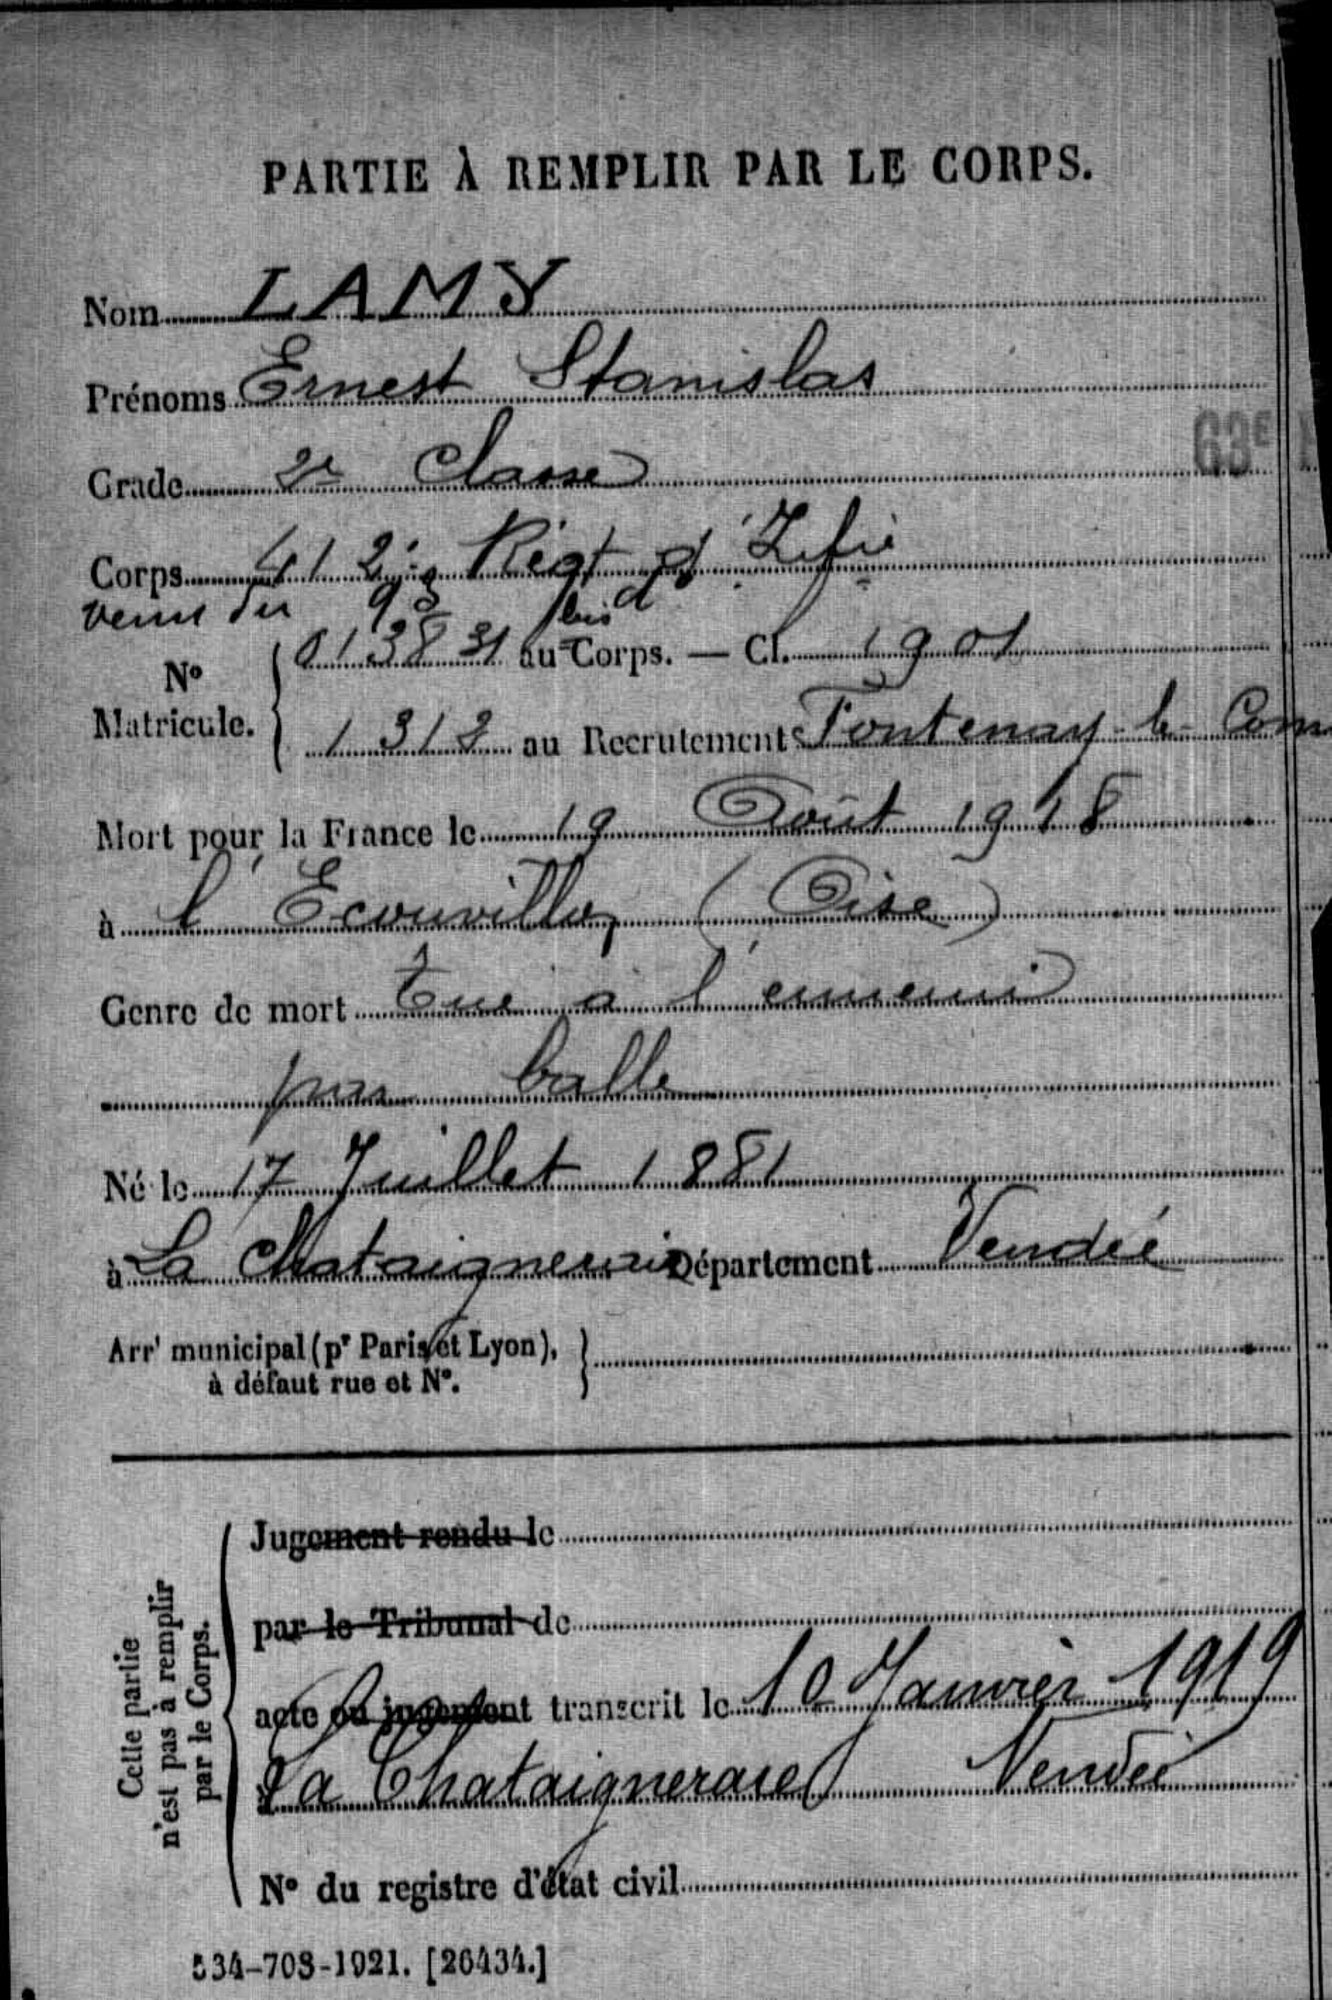 PARTIE À REMPLIR PAR LE CORPS.
Nom LAMY
Prénoms Ernest Stanislas
Grade 2e Classe
63E
Corps 412e Régt d'
venu du 93
N° Matricule. 013831 bis au Corps. — Cl. 1901
1312 au Recrutement Fontenay-le-Com
Mort pour la France le 19 Août 1918
à l'Ecouvillon (Oise)
Genre de mort tué à l'ennemi
par balle
Né le 17 Juillet 1881
à La Chataigneraie Département Vendée
Arrt municipal (pr Paris et Lyon),
à défaut rue et N°.
Cette partie
n'est pas à remplir
par le Corps.
Jugement rendu le
par le Tribunal de
acte ou jugement transcrit le 10 Janvier 1919
La Chataigneraie Vendée
N° du registre d'état civil
534-708-1921. [26434.]